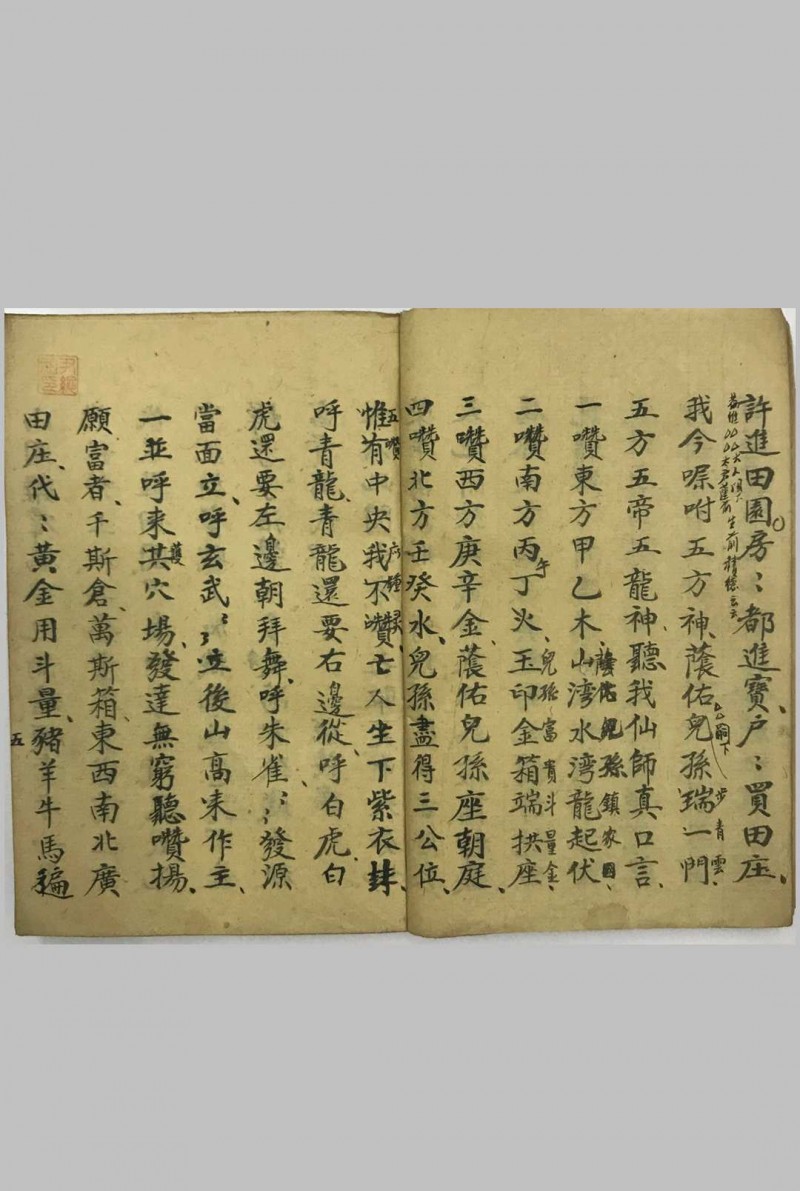 許進田園房〻都進寶戶〻買田庄、
我今囑咐五方神、蔭佑兒孫瑞一門
步青雲、
五方五帝五龍神、聽我仙師真口言、
一讚東方甲乙木、山湾水湾龍起伏
蔭佑兒孫鎮家國、
二讚南方丙丁火、玉印金箱端拱座
午
兒孫富貴斗量金、
三讚西方庚辛金、蔭佑兒孫座朝庭、
四讚北方壬癸水、兒孫盡得三公位、
五讚
惟有中央我不讚、亡人生下紫衣
呼青龍、青龍還要右邊從、呼白虎、白
虎還要左邊朝拜舞、呼朱雀、〻〻發源
當面立、呼玄武、〻〻立後山高來作主、
一並呼來其穴場、發達無窮聽讚揚、
護
願富者、千斯倉、萬斯箱、東西南北廣
田庄、代〻黃金用斗量、豬羊牛馬遍
五